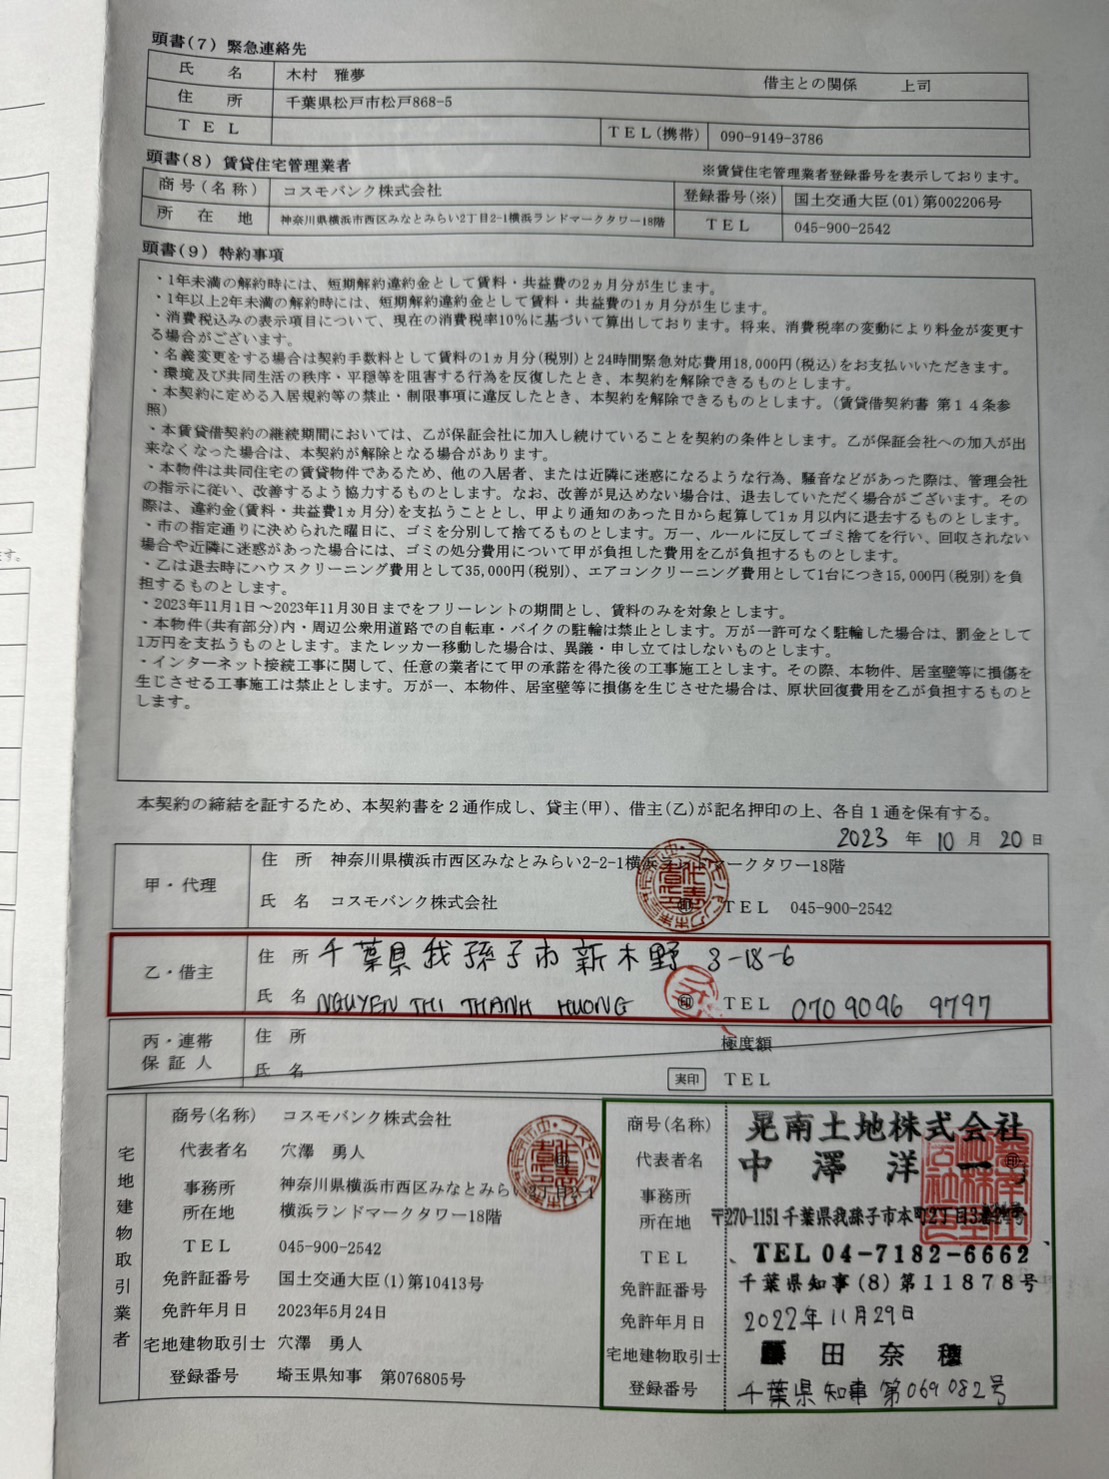 頭書(7) 緊急連絡先
氏 名 木村 雅夢 借主との関係 上司
住 所 千葉県松戸市松戸868-5
TEL TEL(携帯) 090-9149-3786
頭書(8) 賃貸住宅管理業者 ※賃貸住宅管理業者登録番号を表示しております。
商号(名称) コスモバンク株式会社 登録番号(※) 国土交通大臣(01)第002206号
所 在 地 神奈川県横浜市西区みなとみらい2丁目2-1横浜ランドマークタワー18階 TEL 045-900-2542
頭書(9) 特約事項
・1年未満の解約時には、短期解約違約金として賃料・共益費の2ヵ月分が生じます。
・1年以上2年未満の解約時には、短期解約違約金として賃料・共益費の1ヵ月分が生じます。
・消費税込みの表示項目について、現在の消費税率10%に基づいて算出しております。将来、消費税率の変動により料金が変更す
る場合がございます。
・名義変更をする場合は契約手数料として賃料の1ヵ月分(税別)と24時間緊急対応費用18,000円(税込)をお支払いいただきます。
・環境及び共同生活の秩序・平穏等を阻害する行為を反復したとき、本契約を解除できるものとします。
・本契約に定める入居規約等の禁止・制限事項に違反したとき、本契約を解除できるものとします。(賃貸借契約書 第14条参
照)
・本賃貸借契約の継続期間においては、乙が保証会社に加入し続けていることを契約の条件とします。乙が保証会社への加入が出
来なくなった場合は、本契約が解除となる場合があります。
・本物件は共同住宅の賃貸物件であるため、他の入居者、または近隣に迷惑になるような行為、騒音などがあった際は、管理会社
の指示に従い、改善するよう協力するものとします。なお、改善が見込めない場合は、退去していただく場合がございます。その
際は、違約金(賃料・共益費1ヵ月分)を支払うこととし、甲より通知のあった日から起算して1ヵ月以内に退去するものとします。
・市の指定通りに決められた曜日に、ゴミを分別して捨てるものとします。万一、ルールに反してゴミ捨てを行い、回収されない
場合や近隣に迷惑があった場合には、ゴミの処分費用について甲が負担した費用を乙が負担するものとします。
・乙は退去時にハウスクリーニング費用として35,000円(税別)、エアコンクリーニング費用として1台につき15,000円(税別)を負
担するものとします。
・2023年11月1日〜2023年11月30日までをフリーレントの期間とし、賃料のみを対象とします。
・本物件(共有部分)内・周辺公衆用道路での自転車・バイクの駐輪は禁止とします。万が一許可なく駐輪した場合は、罰金として
1万円を支払うものとします。またレッカー移動した場合は、異議・申し立てはしないものとします。
・インターネット接続工事に関して、任意の業者にて甲の承諾を得た後の工事施工とします。その際、本物件、居室壁等に損傷を
生じさせる工事施工は禁止とします。万が一、本物件、居室壁等に損傷を生じさせた場合は、原状回復費用を乙が負担するものと
します。
本契約の締結を証するため、本契約書を2通作成し、貸主(甲)、借主(乙)が記名押印の上、各自1通を保有する。
2023 年 10 月 20 日
甲・代理
住 所 神奈川県横浜市西区みなとみらい2-2-1横浜ランドマークタワー18階
氏 名 コスモバンク株式会社 TEL 045-900-2542
乙・借主
住 所 千葉県我孫子市新木野 3-18-6
氏 名 NGUYEN THI THANH HUONG 印 TEL 070 9096 9797
丙・連帯
保証人
住 所 極度額
氏 名 実印 TEL
宅地建物取引業者
商号(名称) コスモバンク株式会社
代表者名 穴澤 勇人
事務所
所在地 神奈川県横浜市西区みなとみらい2丁目2-1
横浜ランドマークタワー18階
TEL 045-900-2542
免許証番号 国土交通大臣(1)第10413号
免許年月日 2023年5月24日
宅地建物取引士 穴澤 勇人
登録番号 埼玉県知事 第076805号
商号(名称) 晃南土地株式会社
代表者名 中澤洋一 印
事務所
所在地 〒270-1151千葉県我孫子市本町2丁目
TEL TEL 04-7182-6662
免許証番号 千葉県知事(8)第11878号
免許年月日 2022年11月29日
宅地建物取引士 田奈穂
登録番号 千葉県知事 第069082号
す。